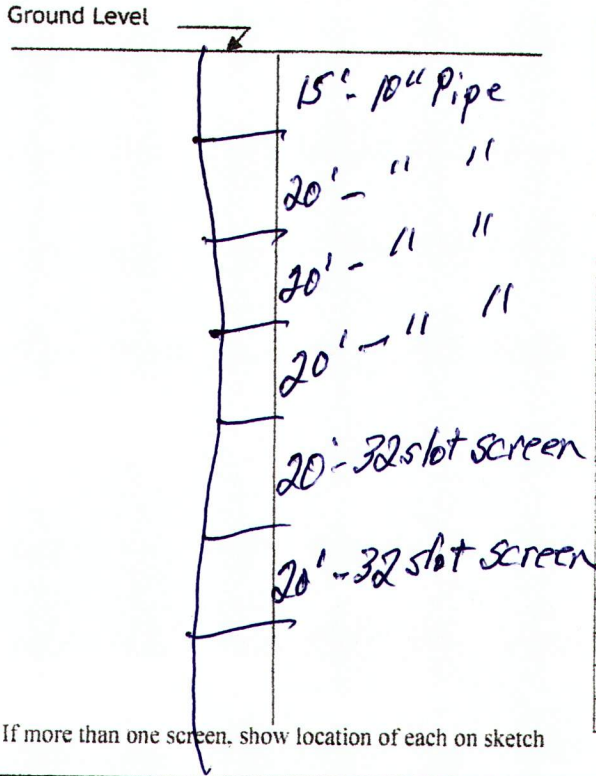 Ground Level
15' - 10" Pipe
20' - " "
20' - " "
20' - " "
20' - 32 slot screen
20' - 32 slot screen
If more than one screen, show location of each on sketch